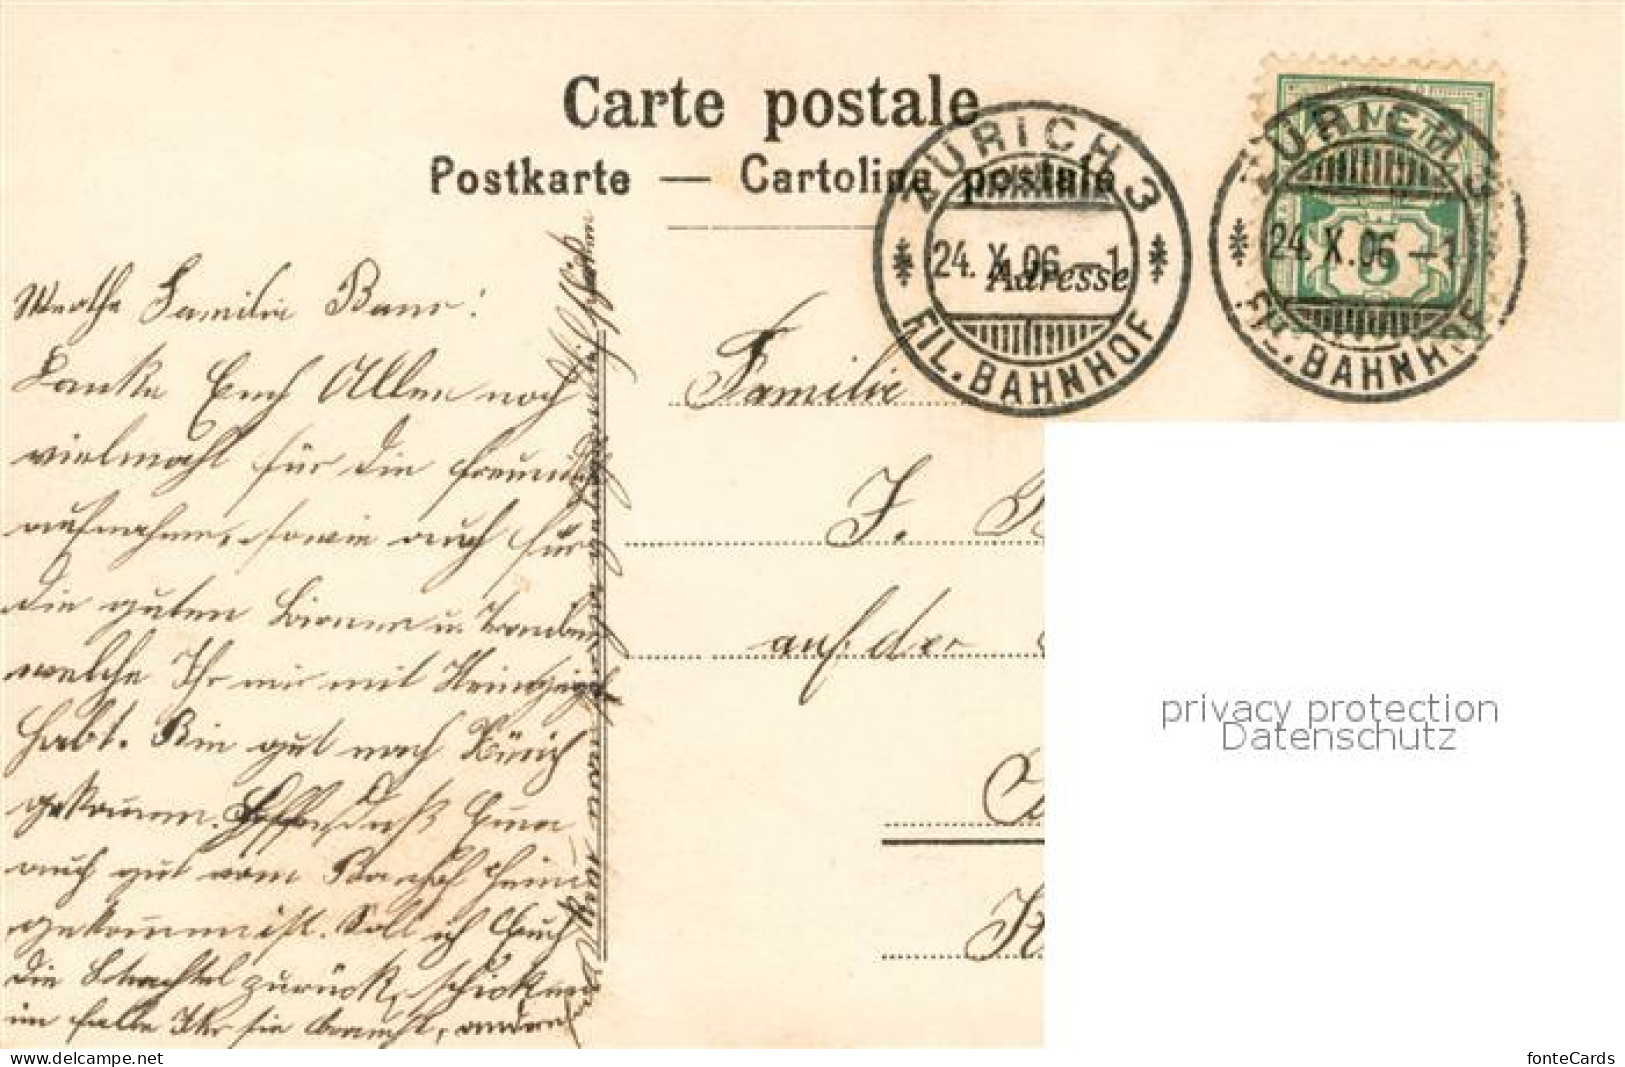 Carte postale
Postkarte — Cartolina postale
ZÜRICH 3
24. X. 06 – 1
FIL. BAHNHOF
ZÜRICH 3
24. X. 06 – 1
FIL. BAHNHOF
5
Adresse
Werthe Familie Baur!
Danke Euch Allen noch
vielmahl für die freundl.
aufnahme, sowie auch für
die guten Birnen u. Trauben
welche Ihr mir mit
habt. Bin gut nach Zürich
gekommen. Hoffe, daß
auch gut vom Bahnhof heim
gekommen ist. Soll ich Euch
die Schachtel zurück schicken
im falle Ihr sie braucht,
Familie
J.
auf der
privacy protection
Datenschutz
www.delcampe.net
fonteCards